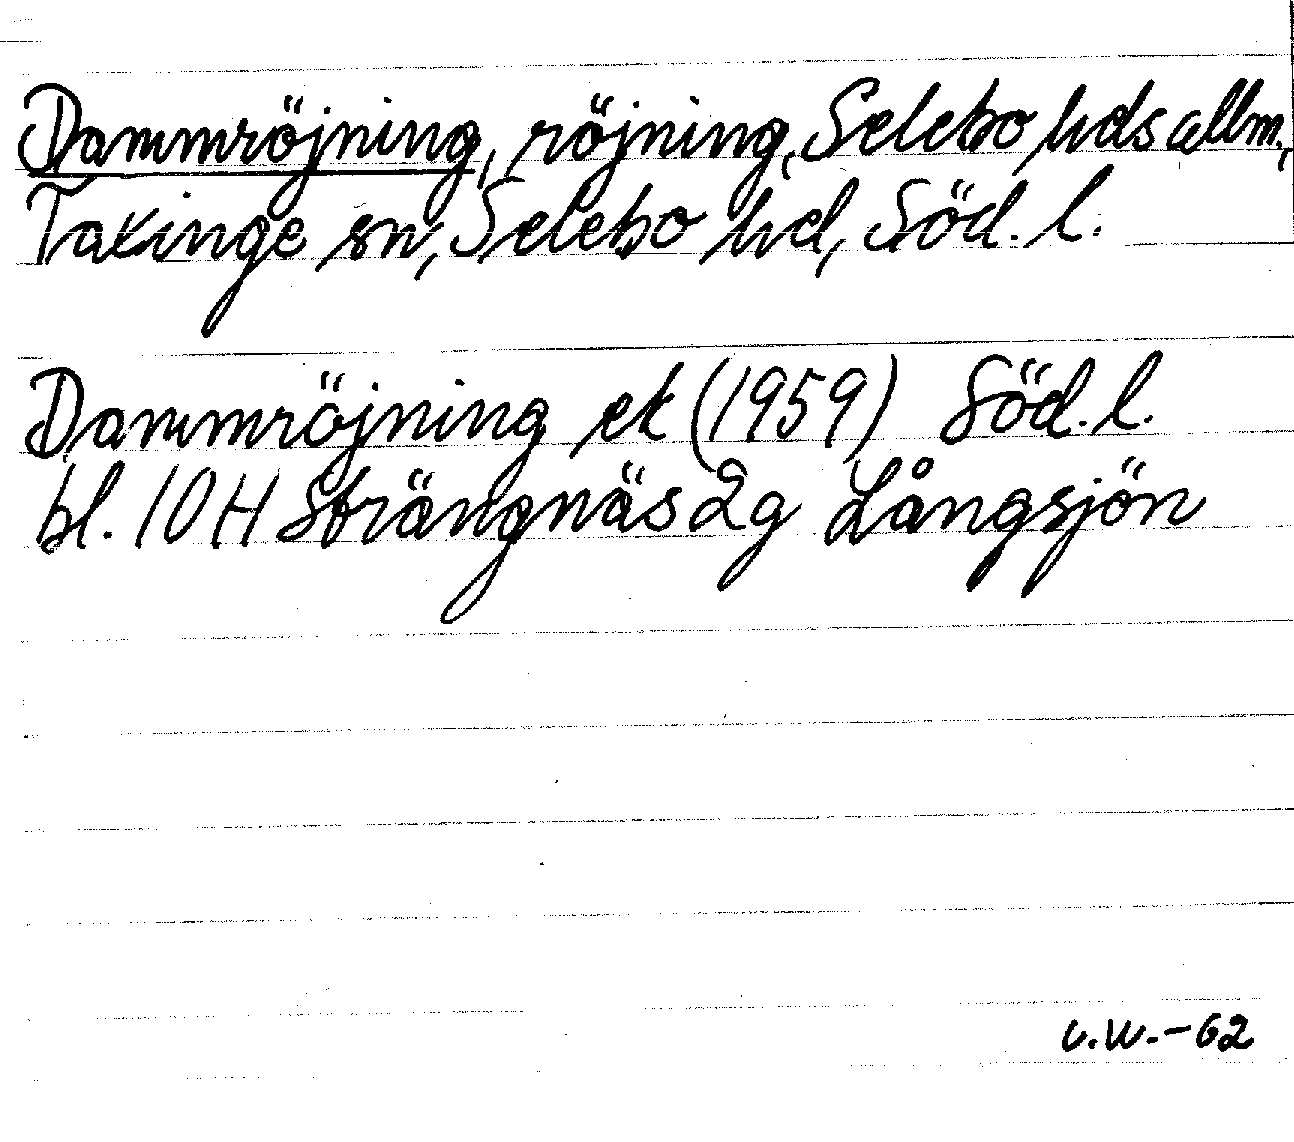 Dammröjning, röjning, Selebo hds allm.,
Taxinge sn, Selebo hd, Söd. l.
Dammröjning ek (1959) Söd. l.
bl. 10 H Strängnäs 2g Långsjön
v.w.-62